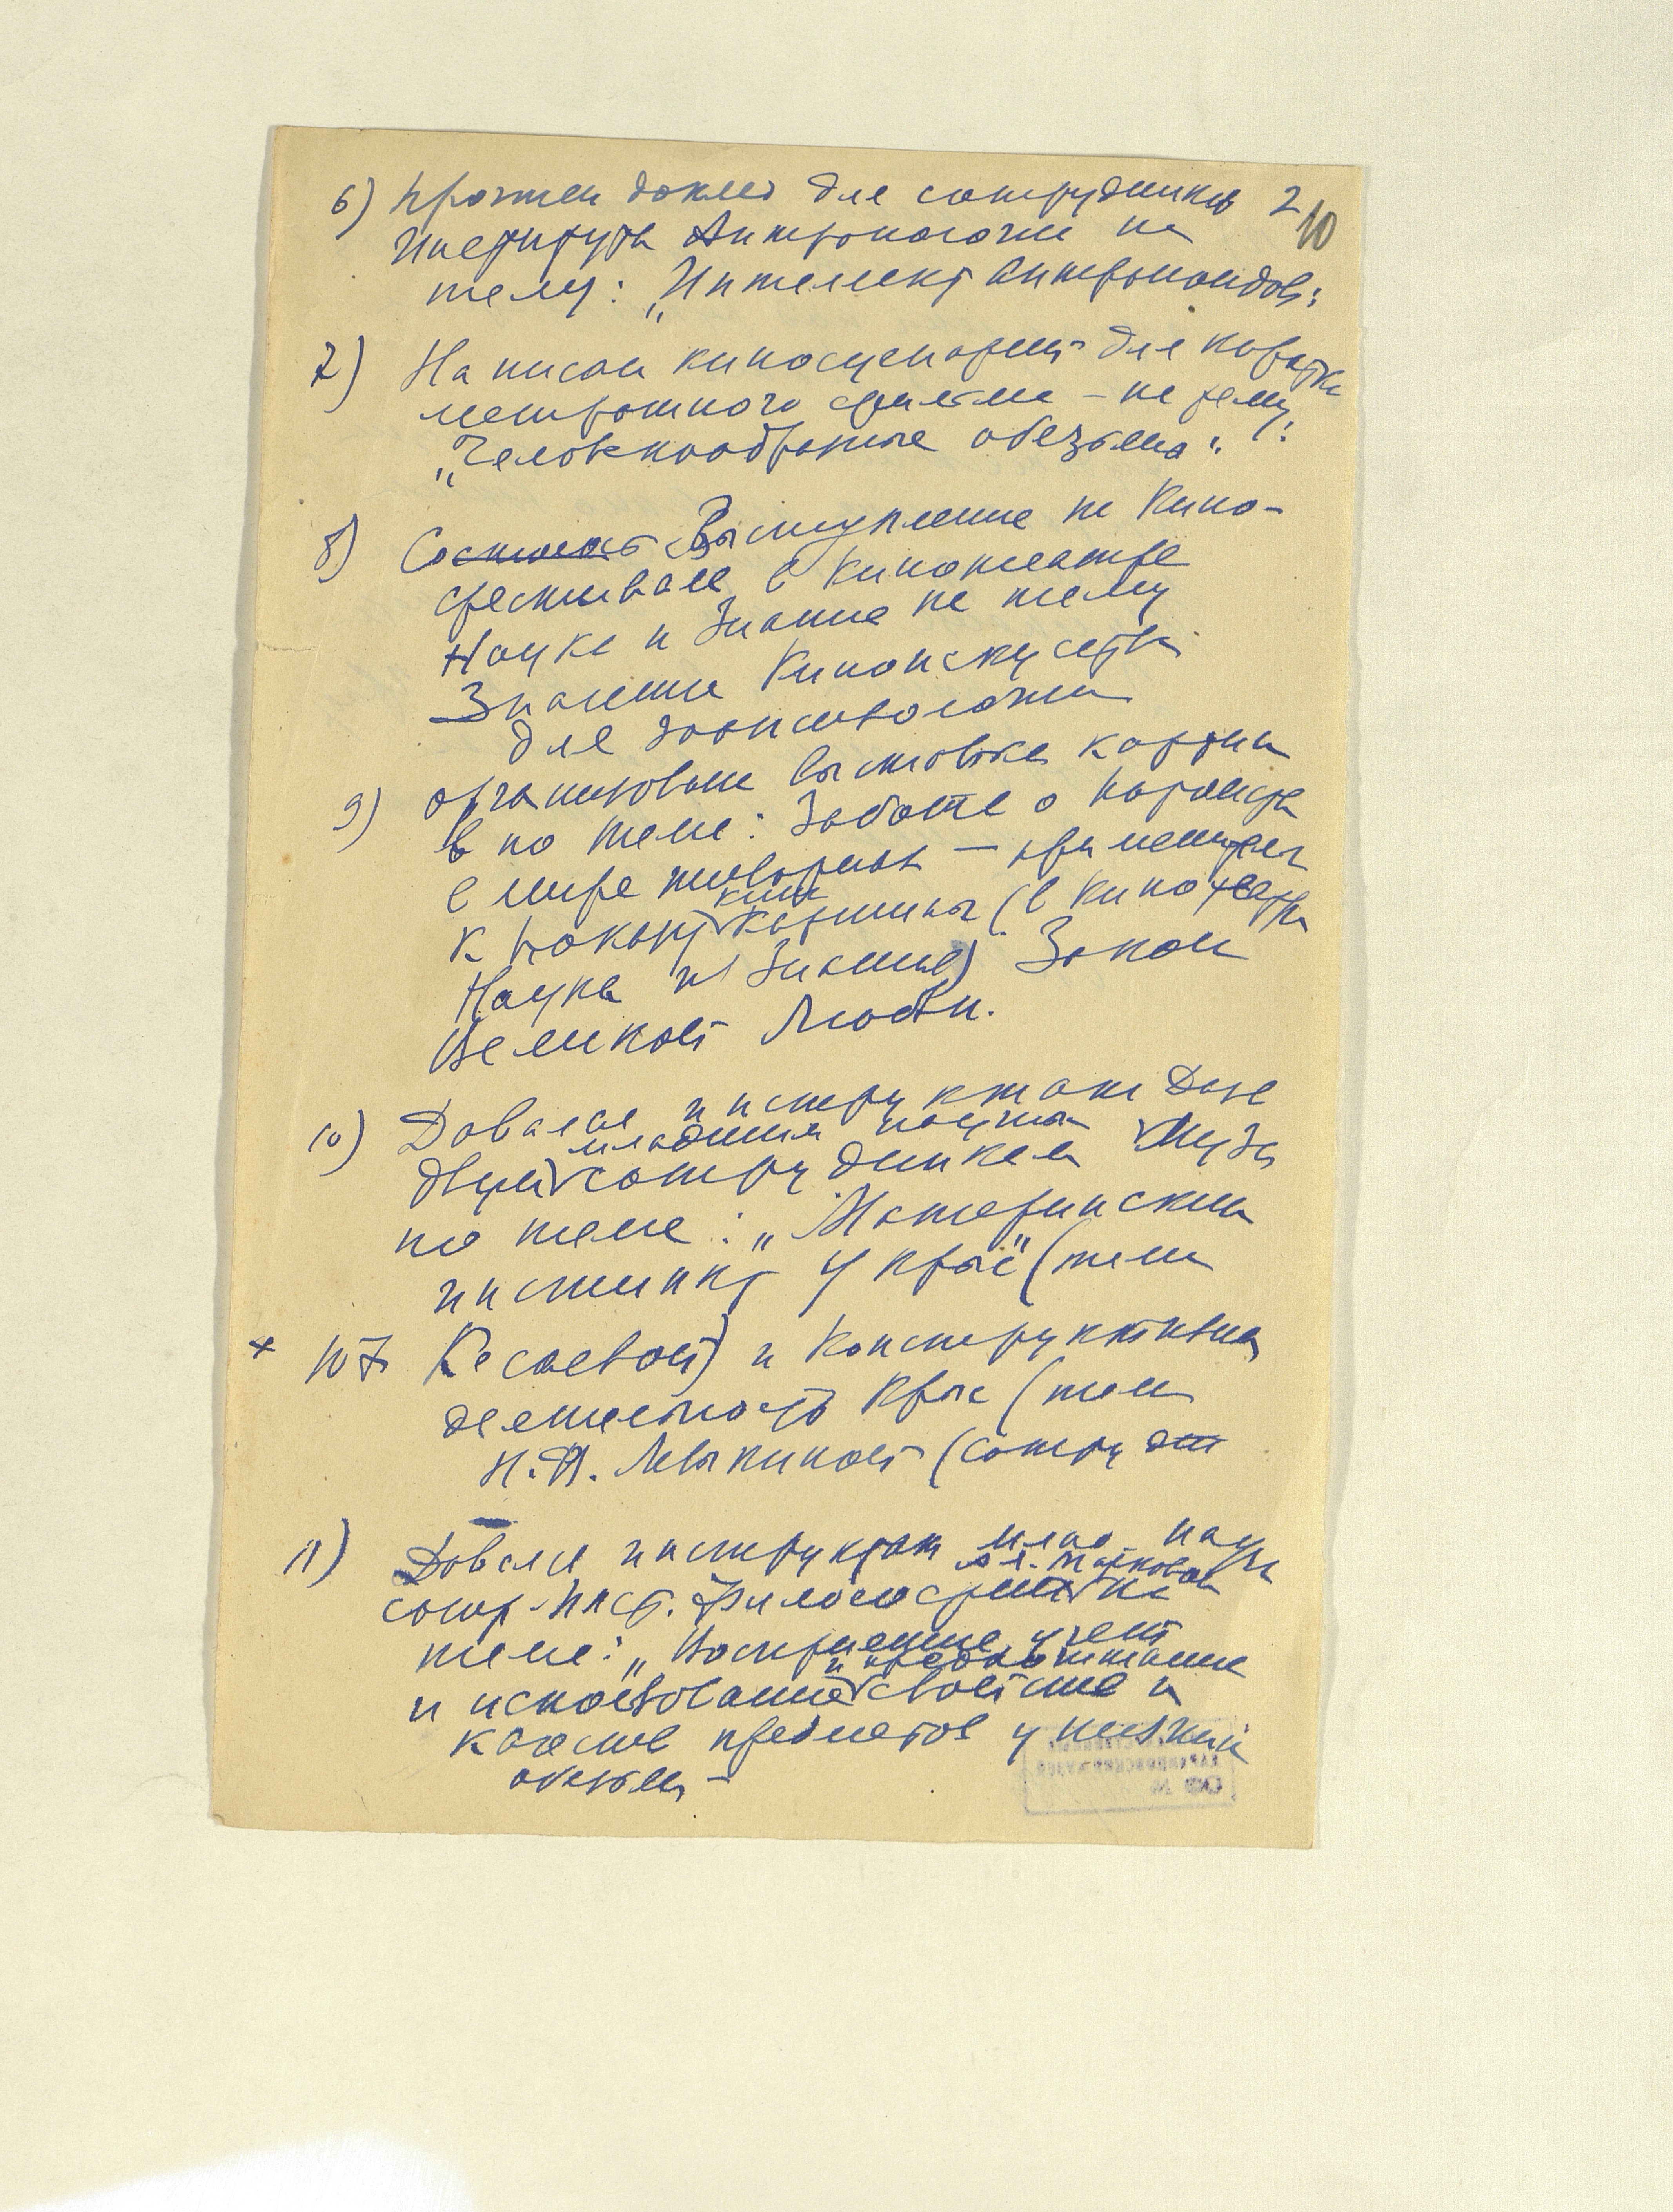 6) Прочтен доклад для сотрудников 2
10
Института Антропологии на
тему: „Интеллект Антропоидов“
7) Написан киносценарий для коротко
метражного фильма – на тему:
„Человекообразные обезьяны“.
8) Выступление на Кино-
фестивале в Кинотеатре
Наука и Знание на тему
Значение Киноискусства
для зоопсихологии
9) организована выставка картин
в по теме: Забота о потомстве
в мире животных – применительно
к показу кино картины (в кинотеатре
Наука и Знание) Закон
Великой Любви.
10) Давала инструктаж Даже
двум младшим научным сотрудникам Музея
по теме: „Материнский
инстинкт у крыс“ (тема
+ 107 Кесаевой) и Конструктивная
деятельность Крыс (тема
Н.Ф. Левыкиной (сотруд
11) Давала инструктаж млад. науч.
сотр. Инст. Философии на
теме: „Восприятие, учет
и использование и предпочтение свойств и
качеств предметов у низших
обезьян –